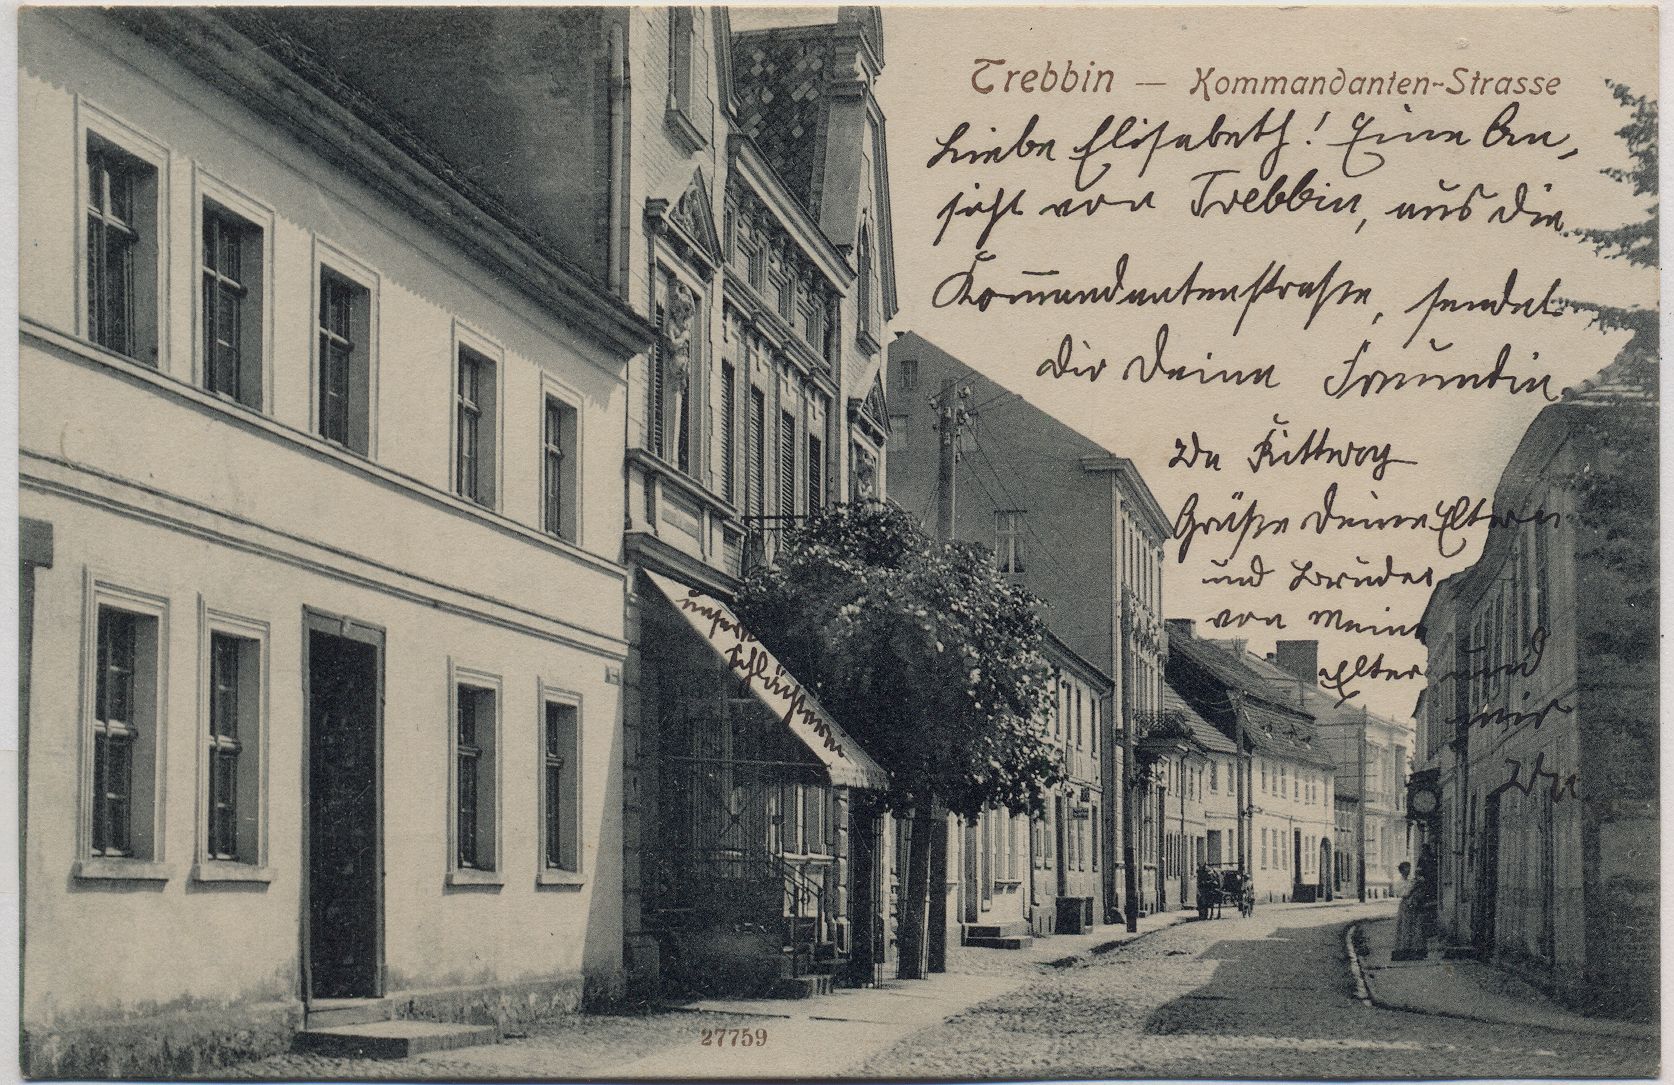 Trebbin — Kommandanten-Strasse
Liebe Elisabeth! Eine An-
sicht von Trebbin, aus die
Kommandantenstraße, sendet
Dir Deine Freundin
Grüße Deine Eltern
und Brüder
von Meine
Elter und
mir
unsere
Schlächterei
27759